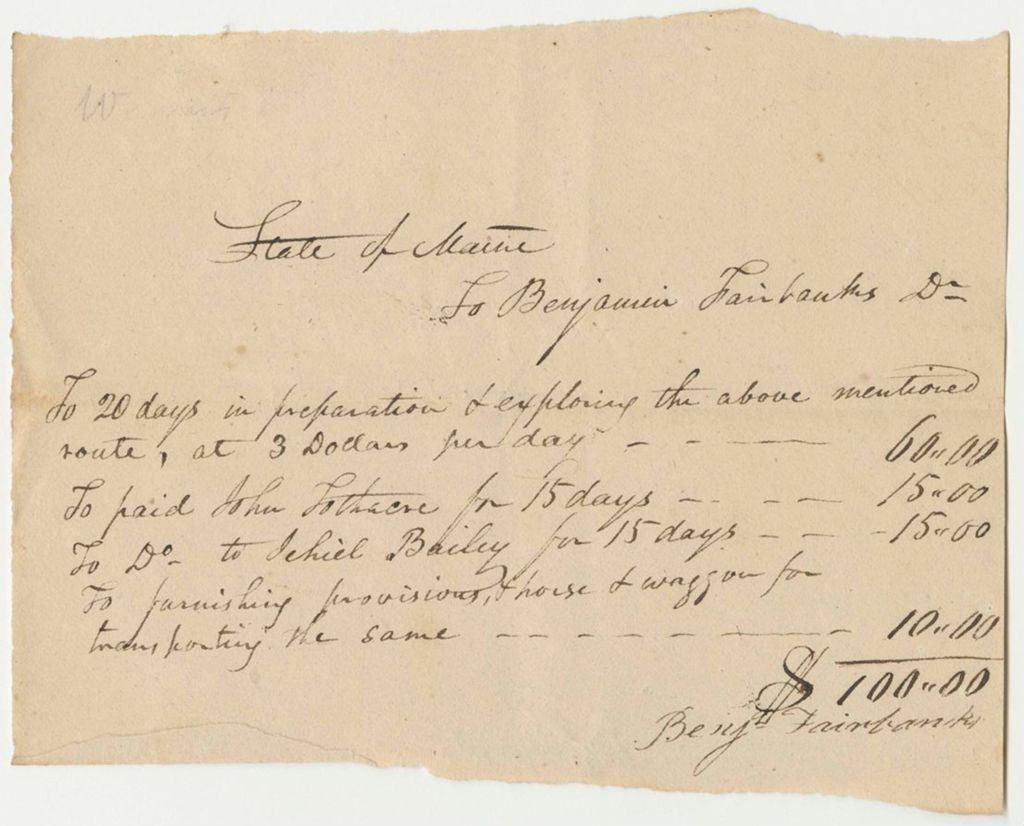 State of Maine
To Benjamin Fairbanks Dr
To 20 days in preparation & exploring the above mentioned
route, at 3 Dollars per day - - — 60"00
To paid John Tothacre for 15 days - - - — 15"00
To Do to Jehiel Bailey for 15 days - - - 15"00
To furnishing provisions, & horse & waggon for
transporting the same - - - - - — - 10"00
$100"00
Benjn Fairbanks